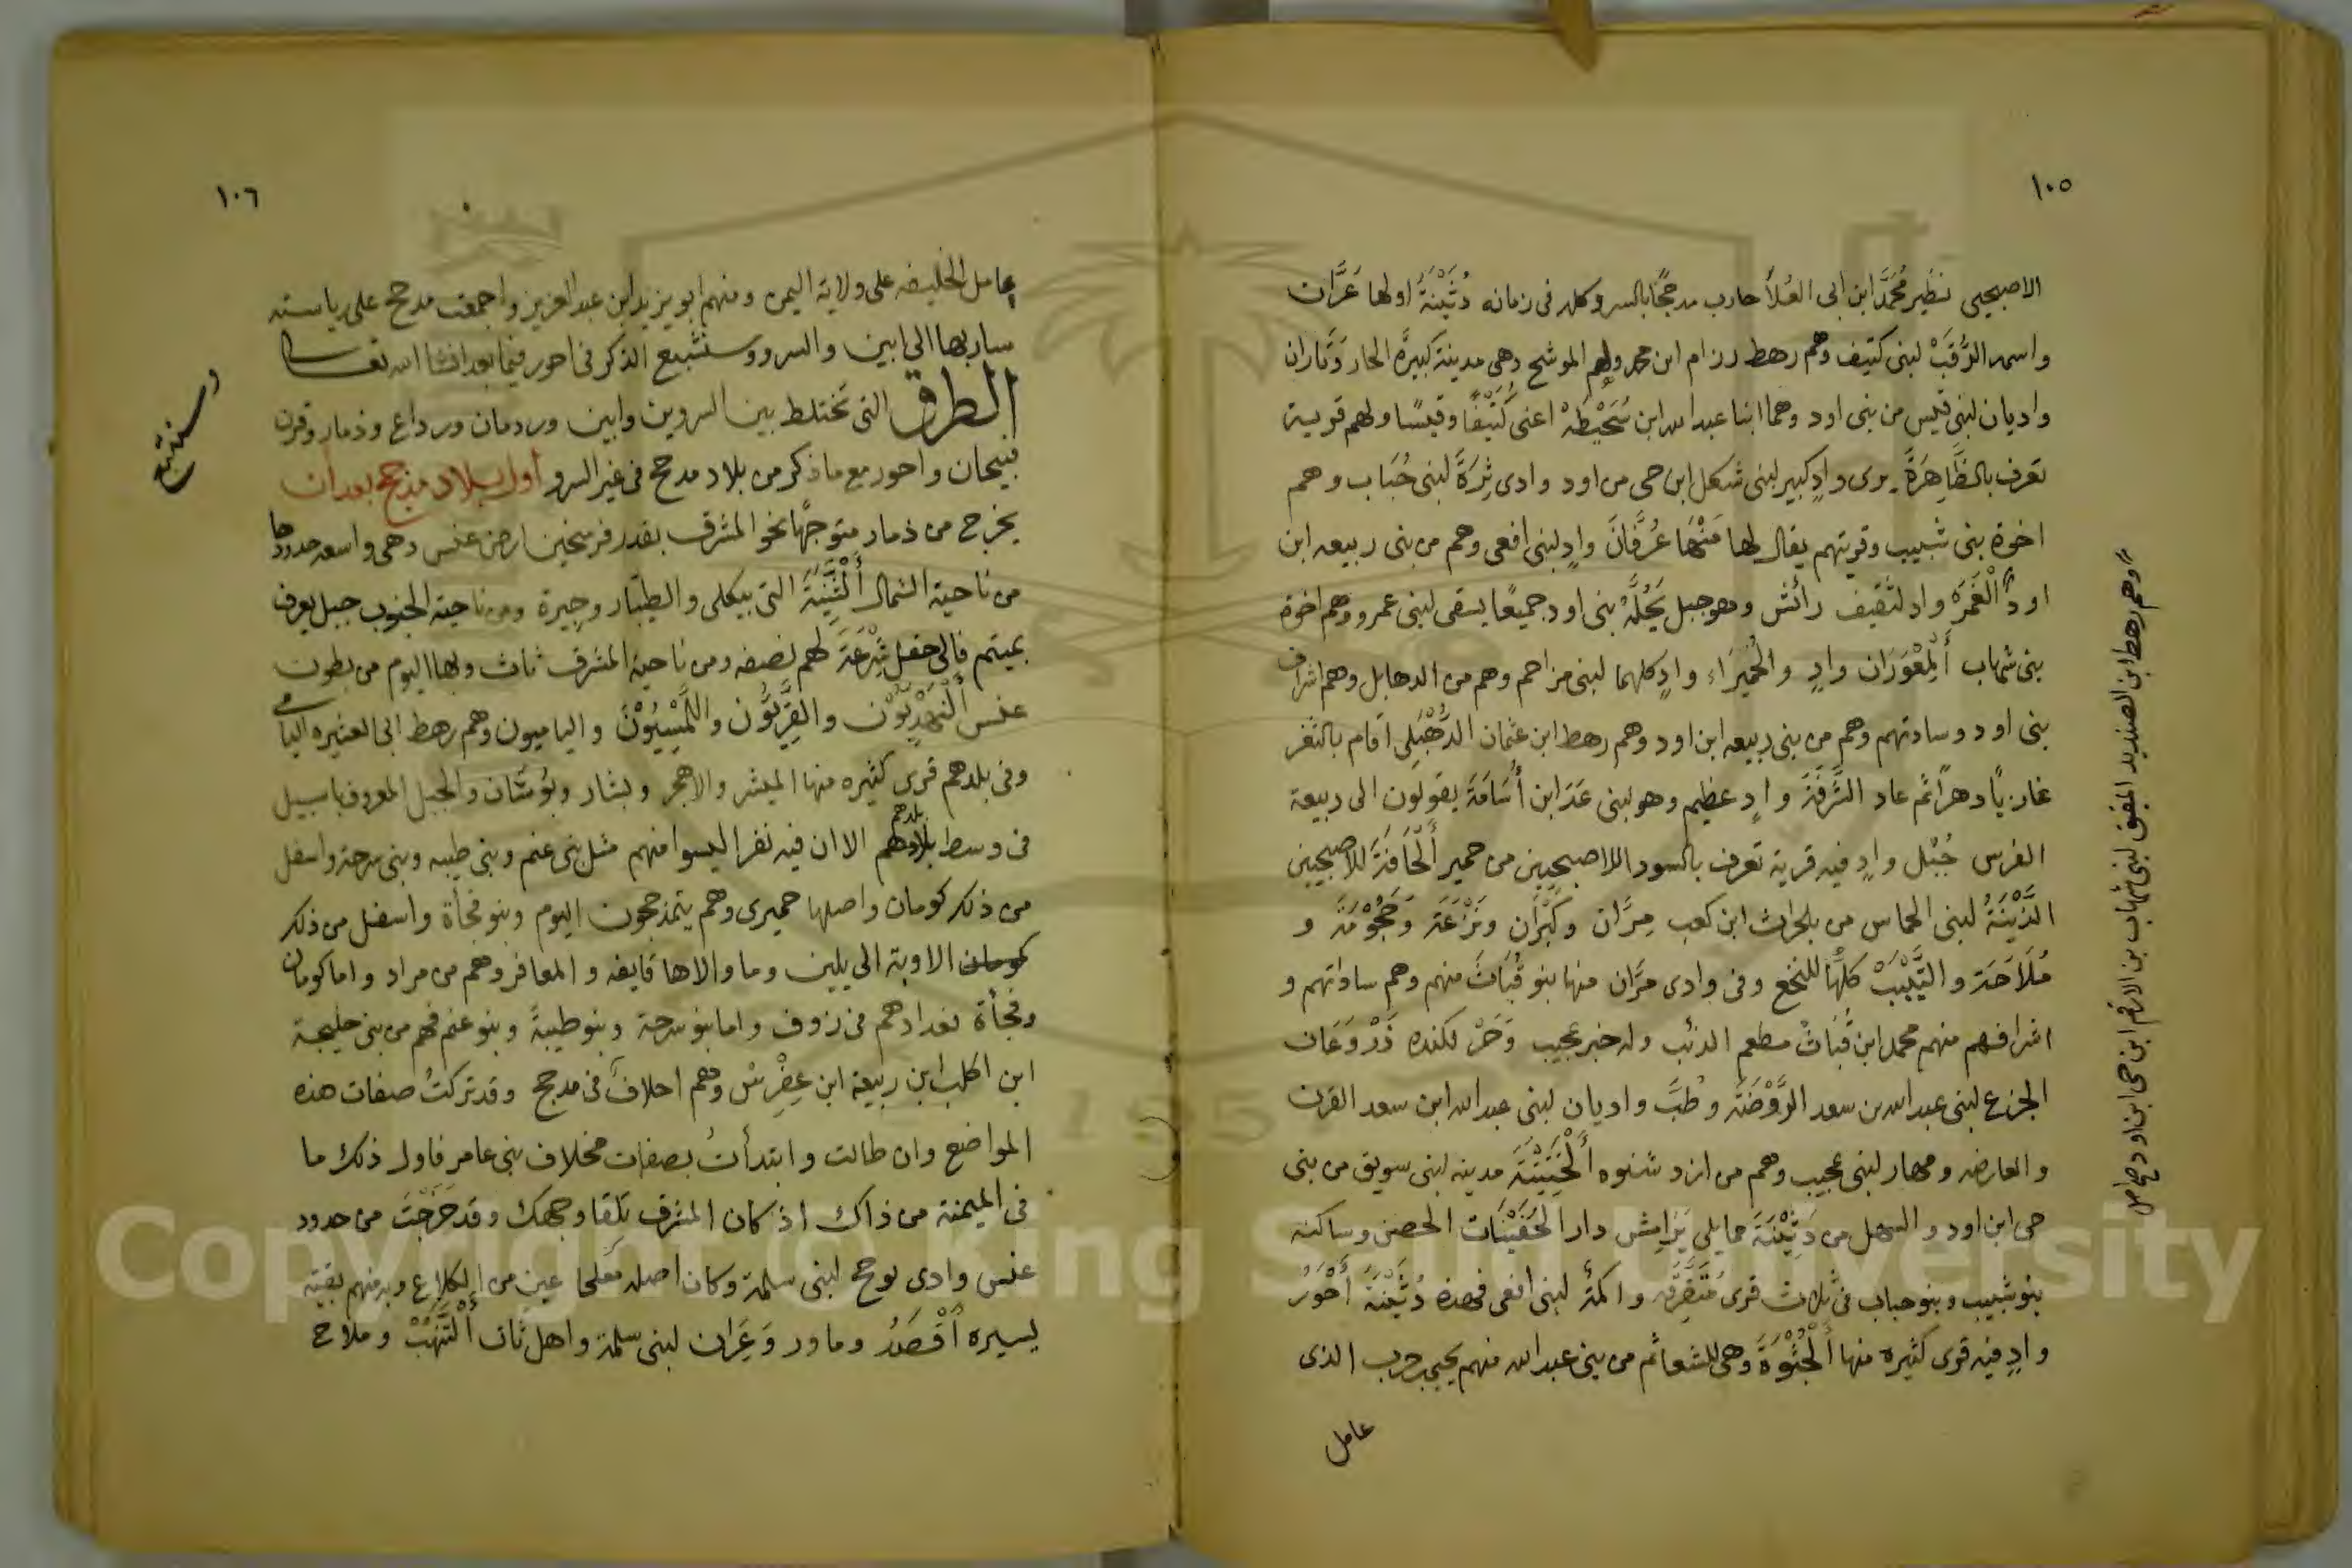 ١٠٥
الاصبحيى نظير مُحمَّد ابن ابى العُلاَ حارب مدحجًا بالسرو كله فى زمانه دُثَيْنَةُ اولها عَرَّان
واسمه الرُّقَبْ لبنى كتيف وهم رهط رزام ابن محمد ولهم الموشح وهى مدينة كبيرة الحار وتاران
واديان لبنى قيس من بنى اود وهما ابنا عبد الله ابن سُحَيْطَهْ اعنى كُتَيْفًا وقيسًا ولهم قرية
تعرف بالظَّاهِرَةَ يرى وادٍ كبير لبنى شكل ابن حى من اود وادى ثِرَةَ لبنى حُبَاب وهم
اخوة بنى شبيب وقريتهم يقال لها مَنْهَا عُرَّفَانَ وادٍ لبنى افعى وهم من بنى ربيعه ابن
اود الْغَمَرَه واد لثقيف رأئش وهو جبل يَحُلَّهُ بنى اود جميعًا يسقى لبنى عمرو وهم اخوة
بنى شهاب أَلْمِعْوَرَان وادٍ والحُمَيْرَاء وادٍ كلهما لبنى مزاحم وهم من الدهابل وهم اشراف
بنى اود وسادتهم وهم من بنى ربيعه ابن اود وهم رهط ابن عثمان الدَّهْبَلِى اقام بالثغر
غازيًا دهرًا ثم عاد الشَّرَفَةَ وادٍ عظيم وهو لبنى عَدَا ابن أُسَامَةَ يقولون الى ربيعة
الفرس جُبْل وادٍ فيه قرية تعرف بالسودا للاصبحيين من حمير أَلْحَافَةَ للاصبحيين
الدَّيْنَةُ لبنى الحماس من بلحرث ابن كعب مِرَّان وكَبْرَان ونَزْعَتَه وَحَجُوْمَةَ و
مُلَاَحَةَ والتَّيْبَبْ كلها للنخع وفى وادى مَرَّان منها بنو قُبَاتْ منهم وهم ساداتهم و
اشرافهم منهم محمد ابن قُبَاتْ مطعم الذئب وله خبر عجيب وَحَرْ لكنده ذَرْوَعَان
الجزع لبنى عبد الله بن سعد الرَّوْضَةَ وطُبَّ واديان لبنى عبد الله ابن سعد القرن
والعارضه ومهار لبنى عجيب وهم من ازد شنوه أَلْجَنِيْنَةَ مدينه لبنى سويق من بنى
حى ابن اود والسهل من دَثِيْنَةَ مما يلى يَرَامِش دار الحُفَيْنَات الحصن وساكنه
بنو شبيب وبنو حباب فى ثلاث قرى مُتَفَرِّقَه واكمَة لبنى افعى فهذه دُثَيْنَةَ أَحْوَرُ
وادٍ فيه قرى كثيره منها أَلْجُثْوَةَ وهى للشعاثم من بنى عبد الله منهم يحيى حرب الذى
عامل
وهم رهط ابن الصنديد المعنق لبنى شهاب بن الارقم ابن حى ابن اود
١٠٦
عامل الخليفه على ولاية اليمن ومنهم ابو يزيد ابن عبد العزيز واجمعت مدحج على رياسته
سار بها الى ابين والسرو وسنشبع الذكر فى احور فيما بعد انشا الله تعالى
الطرق التى تختلط بين السروين وابين وردمان ورداع وذمار وقرن
فبيحان واحور مع ماذكر من بلاد مدحج فى غير السرو أول بلاد مذحج بعد ان
يخرج من ذمار متوجهًا نحو المشرق بقدر فرسخين ارض عنس وهى واسعه حدودها
من ناحية الشمال أَلْثَّنِيَّةَ التى بيكلى والطيار وجيرة ومن ناحية الجنوب جبل يعرف
بميتم فالى حقل شِرْعَةَ لهم نصفه ومن ناحية المشرق ثاث ولها اليوم من بطون
عنس أَلْنَهْدِيُّوْن والقِرِّيُّون واللَّمَيْسِيُوْنَ والياميون وهم رهط ابى العشيره اليامى
وفى بلدهم قرى كثيره منها الميشر والاهجر وبشار وبُوَسَان والجبل المعروف باسبيل
فى وسط بلادهم بلدهم الا ان فيه نفرا ليسوا منهم مثل بنى غنم وبنى طيبه وبنى سرحة واسفل
من ذلك كومان واصلها حميرى وهم يتمذحجون اليوم وبنو فجأة واسفل من ذلك
كومان الاوبة الى يلين وما والاها قايفه والمعافر وهم من مراد واما كومان
وفجأة نعدادهم فى زوف واما بنو سرحة وبنو طيبةَ وبنو غنم فهم من بنى حليجة
ابن اكلب ابن ربيعة ابن عِفْرِسْ وهم احلافَ فى مدحج وقد تركتُ صفات هذه
المواضع وان طالت وابتدأتُ بصفات مخلاف بنى عامر فاول ذلك ما
فى الميمنة من ذاك اذ كان المشرق تلقا وجهك وقد خَرَجْتَ من حدود
عنس وادى لوحح لبنى سلمة وكان اصله مَعلحا عين من الكلاع وبه منهم بقية
يسيره أَقْصَدُ وماور وَعَرَان لبنى سلمة واهل ثات أَلْتَّنَهُّبْ وملاح